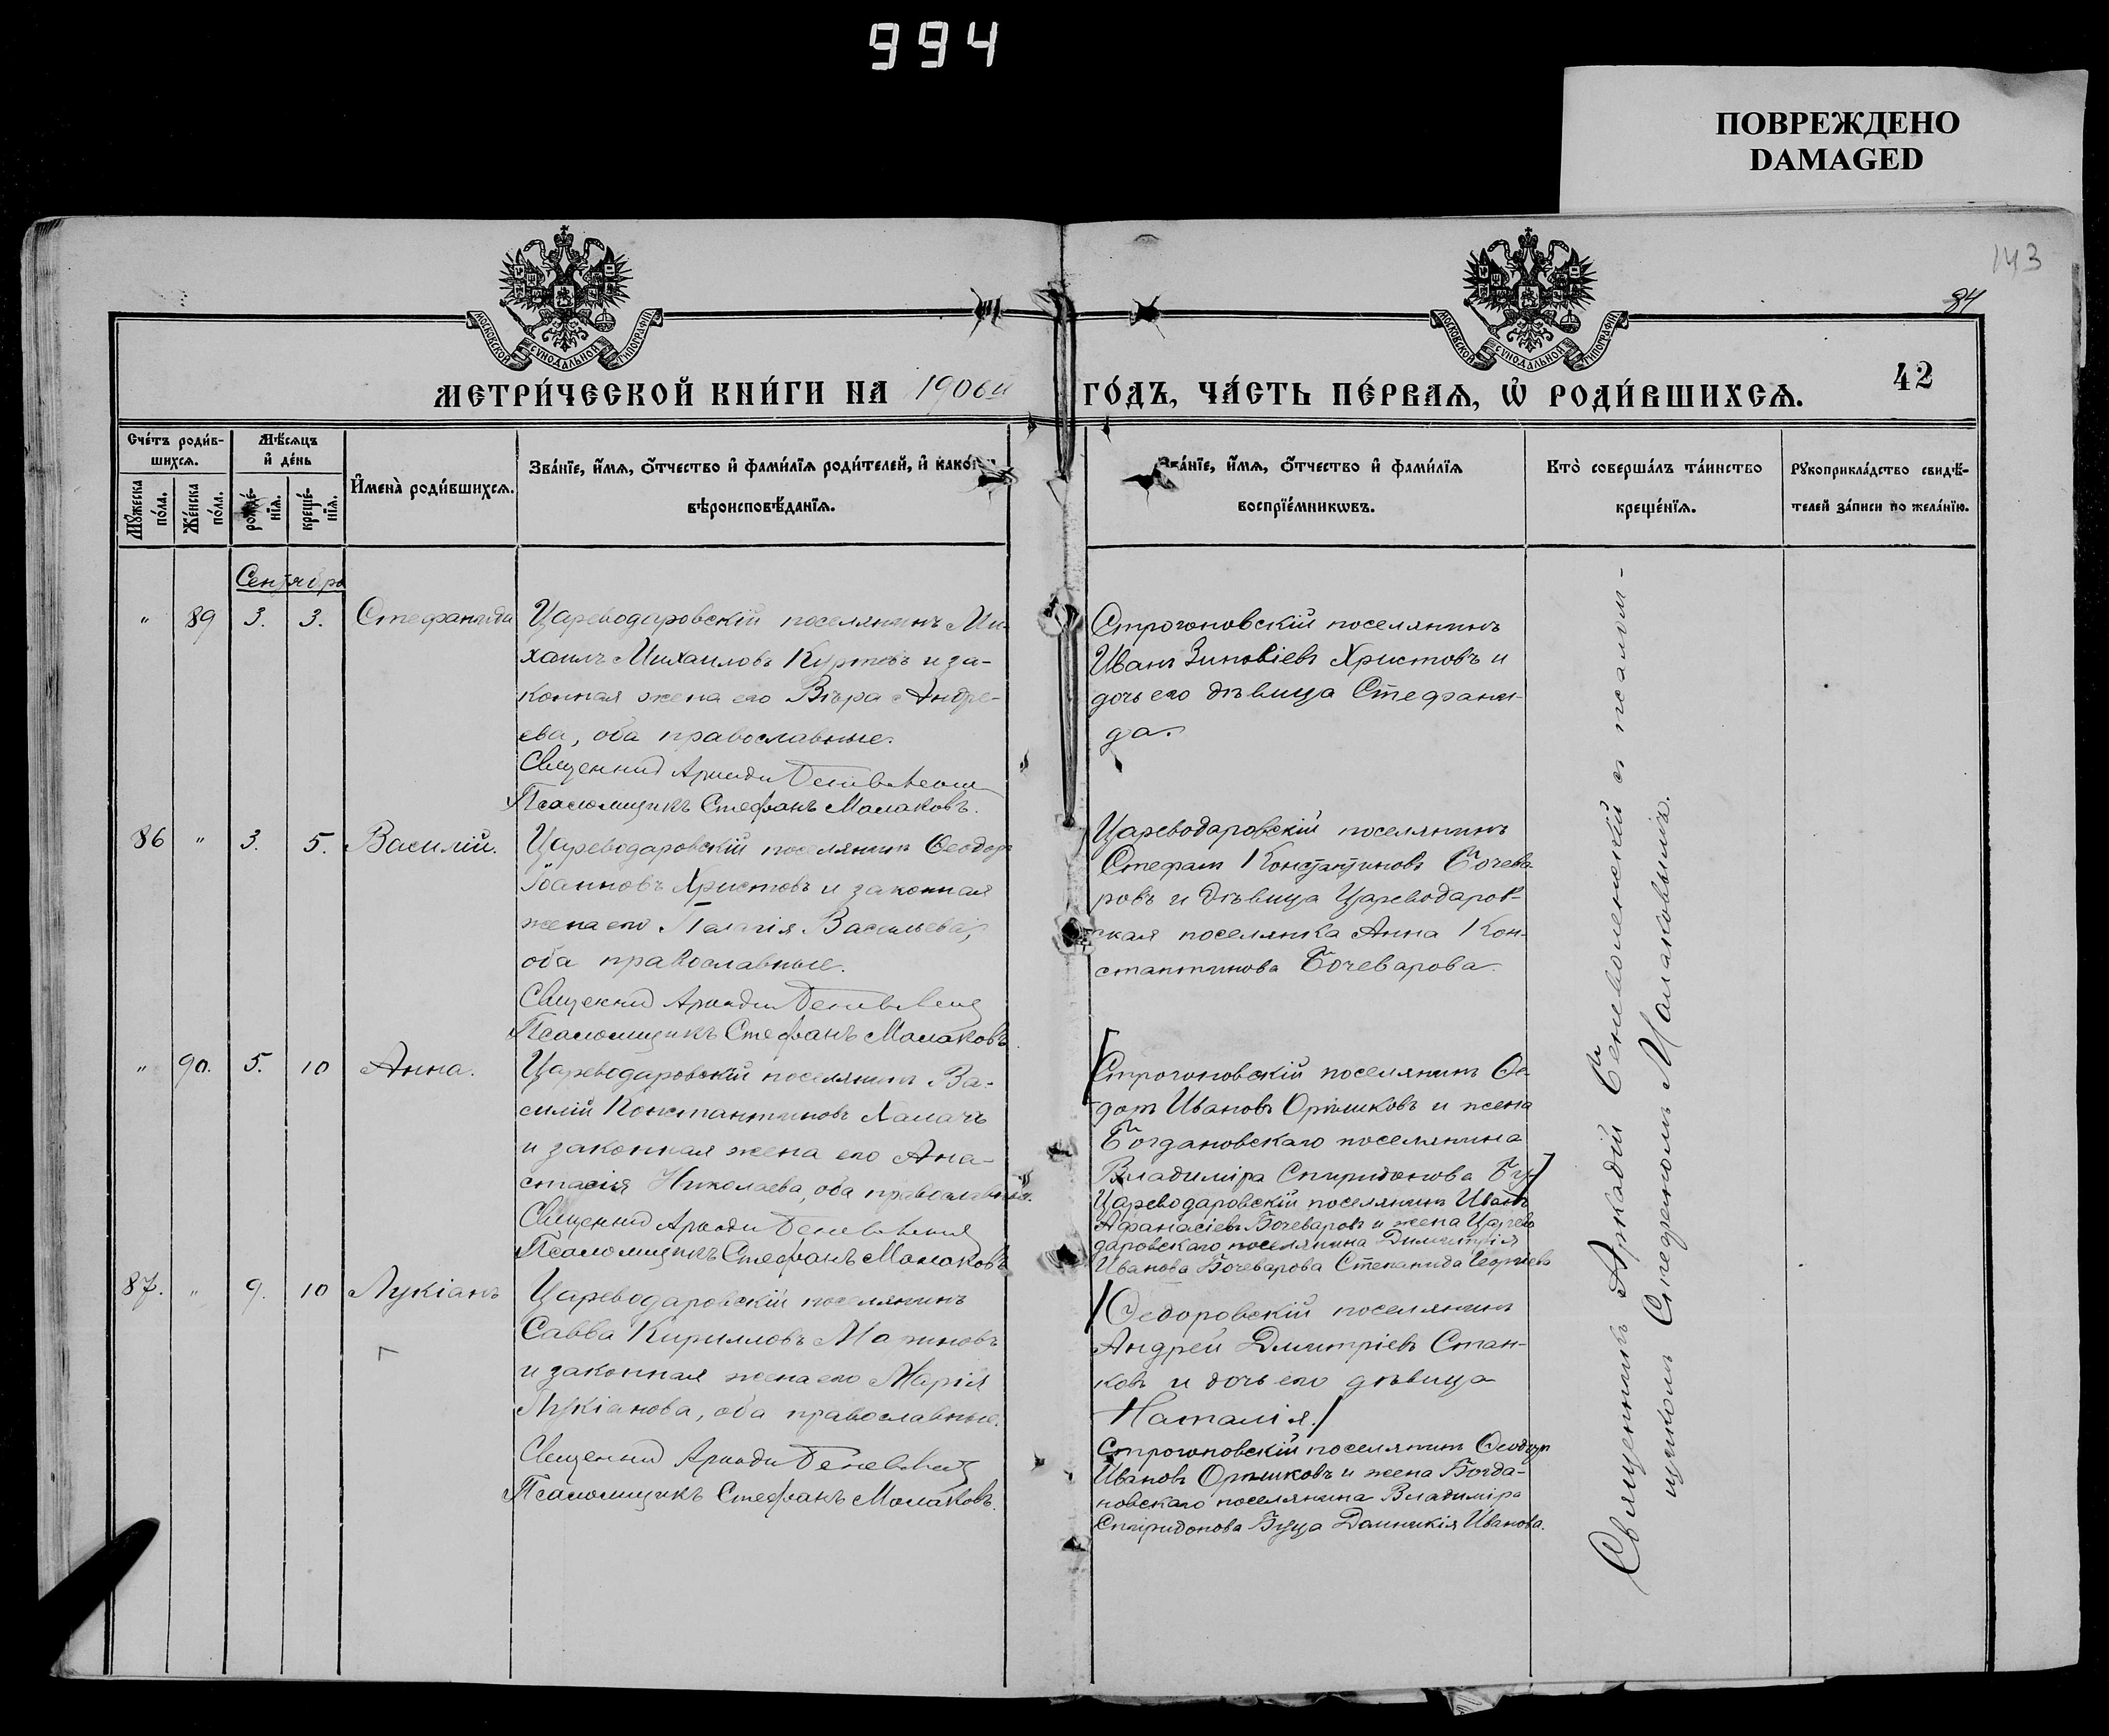 994
ПОВРЕЖДЕНО
DAMAGED
143
84
МОСКОВСКОЙ СУНОДАЛЬНОЙ ТИПОГРАФІИ
МОСКОВСКОЙ СУНОДАЛЬНОЙ ТИПОГРАФІИ
МЕТРИ́ЧЕСКОЙ КНИ́ГИ НА 1906й ГО́ДЪ, ЧА́СТЬ ПЕ́РВАѦ, Ѡ҆ РОДИ́ВШИХСѦ.
42
Сче́тъ роди́в-
шихсѧ.
Мꙋ́жеска
по́ла.
Же́нска
по́ла.
Мѣ́сѧцъ
и҆ де́нь
рожде́-
нїѧ.
креще́-
нїѧ.
И҆мена̀ роди́вшихсѧ.
Зва́нїе, и҆́мѧ, ѻ҆́тчество и҆ фами́лїѧ роди́телей, и҆ како́гѡ
вѣроисповѣ́данїѧ.
Зва́нїе, и҆́мѧ, ѻ҆́тчество и҆ фами́лїѧ
воспрїе́мникѡвъ.
Кто̀ соверша́лъ та́инство
креще́нїѧ.
Рꙋкоприкла́дство свидѣ́-
телей за́писи по жела́нїю.
Сентября
" 89 3. 3. Стефанида
Цареводаровскій поселянинъ Ми-
хаилъ Михаиловъ Куртовъ и за-
конная жена его Вѣра Андре-
ева, оба православные.
Священник Аркадій
Псаломщикъ Стефанъ Малаковъ.
Строгоновскій поселянинъ
Иванъ Зиновіевъ Христовъ и
дочь его дѣвица Стефани-
да.
86 " 3. 5. Василій.
Цареводаровскій поселянинъ Ѳеодоръ
Іоанновъ Христовъ и законная
жена его Палагія Васильева,
оба православные.
Священник Аркадій
Псаломщикъ Стефанъ Малаковъ
Цареводаровскій поселянинъ
Стефанъ Константиновъ Бочева
ровъ и дѣвица Цареводаров-
ская поселянка Анна Кон-
стантинова Бочеварова.
" 90. 5. 10 Анна.
Цареводаровскій поселянинъ Ва-
силій Константиновъ Халачъ
и законная жена его Ана-
стасія Николаева, оба православные.
Священник Аркадій
Псаломщикъ Стефанъ Малаковъ
[Строгоновскій поселянинъ Ѳе-
дотъ Ивановъ и жена
Богдановскаго поселянина
Владиміра Спиридонова Бу-]
Цареводаровскій поселянинъ Иванъ
Афанасіевъ Бочеваровъ и жена Царево
даровскаго поселянина Димитрія
Иванова Бочеварова Степанида Георгіева
87. " 9. 10 Лукіанъ
Цареводаровскій поселянинъ
Савва Кирилловъ Мариновъ
и законная жена его Марія
Лукіанова, оба православные.
Священник Аркадій
Псаломщикъ Стефанъ Малаковъ.
/Ѳедоровскій поселянинъ
Андрей Димитріевъ Стан-
ковъ и дочь его дѣвица
Наталія./
Строгоновскій поселянинъ
Ивановъ и жена Богда-
новскаго поселянина Владиміра
Спиридонова Буца Домникія Иванова.
Священникъ Аркадій с псалом-
щикомъ Стефаномъ Малаковымъ.